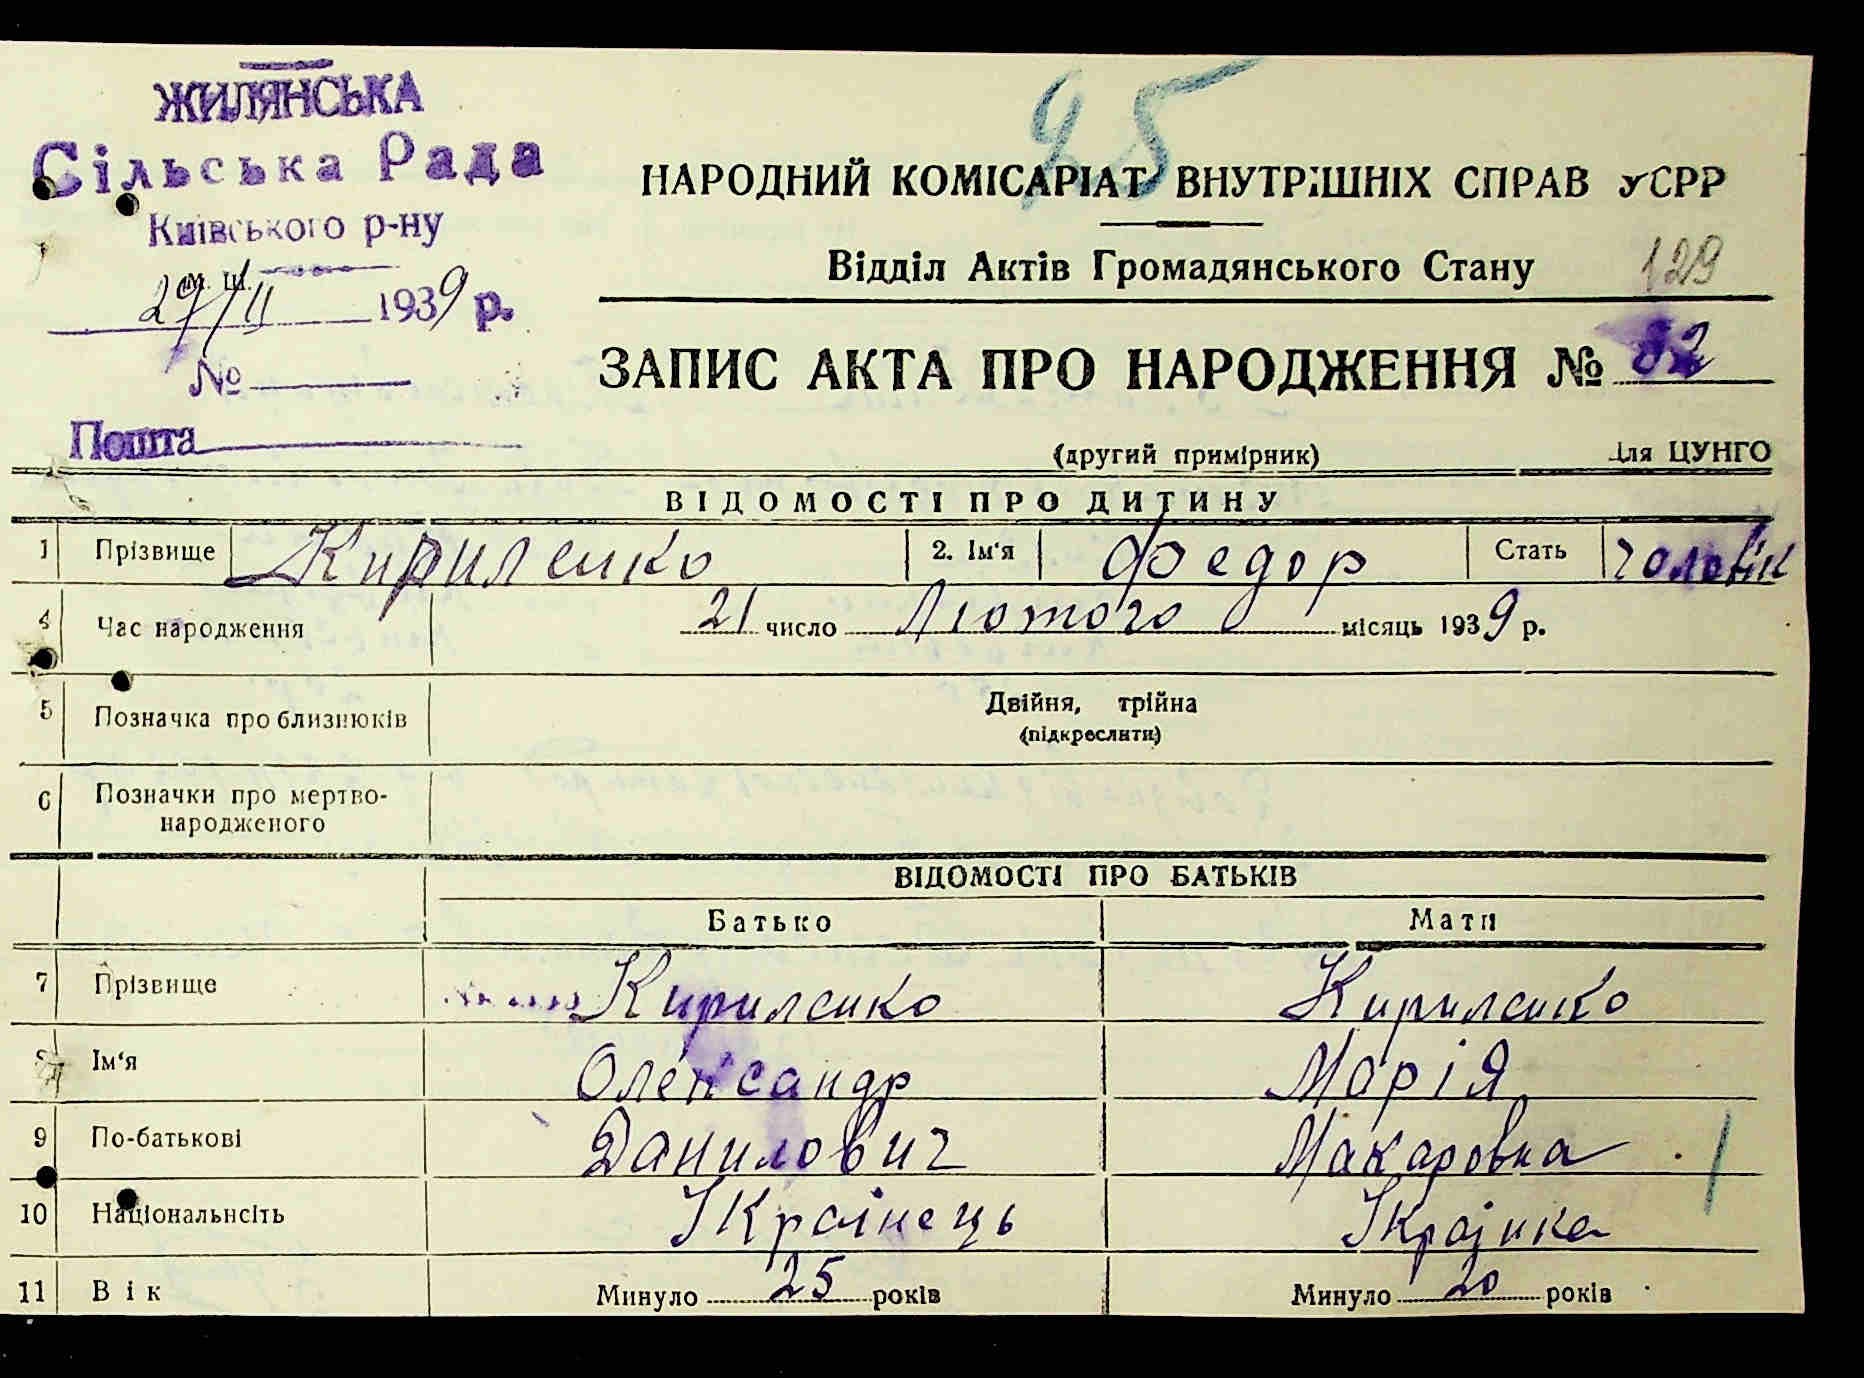 ЖИЛЯНСЬКА
Сільська Рада
Київського р-ну
1939 р.
№
Пошта
25
НАРОДНИЙ КОМІСАРІАТ ВНУТРІШНІХ СПРАВ УСРР
Відділ Актів Громадянського Стану
129
ЗАПИС АКТА ПРО НАРОДЖЕННЯ № 82
(другий примірник) Для ЦУНГО
ВІДОМОСТІ ПРО ДИТИНУ
1 Прізвище Кириленко 2. Ім'я Федор Стать чоловік
4 Час народження 21 число Лютого місяць 1939 р.
5 Позначка про близнюків Двійня, трійна
(підкреслити)
6 Позначки про мертво-
народженого
ВІДОМОСТІ ПРО БАТЬКІВ
Батько Мати
7 Прізвище Кириленко Кириленко
8 Ім'я Олександр Марія
9 По-батькові Данилович Макаровна
10 Національнсіть Українець Українка
11 Вік Минуло 25 років Минуло 20 років